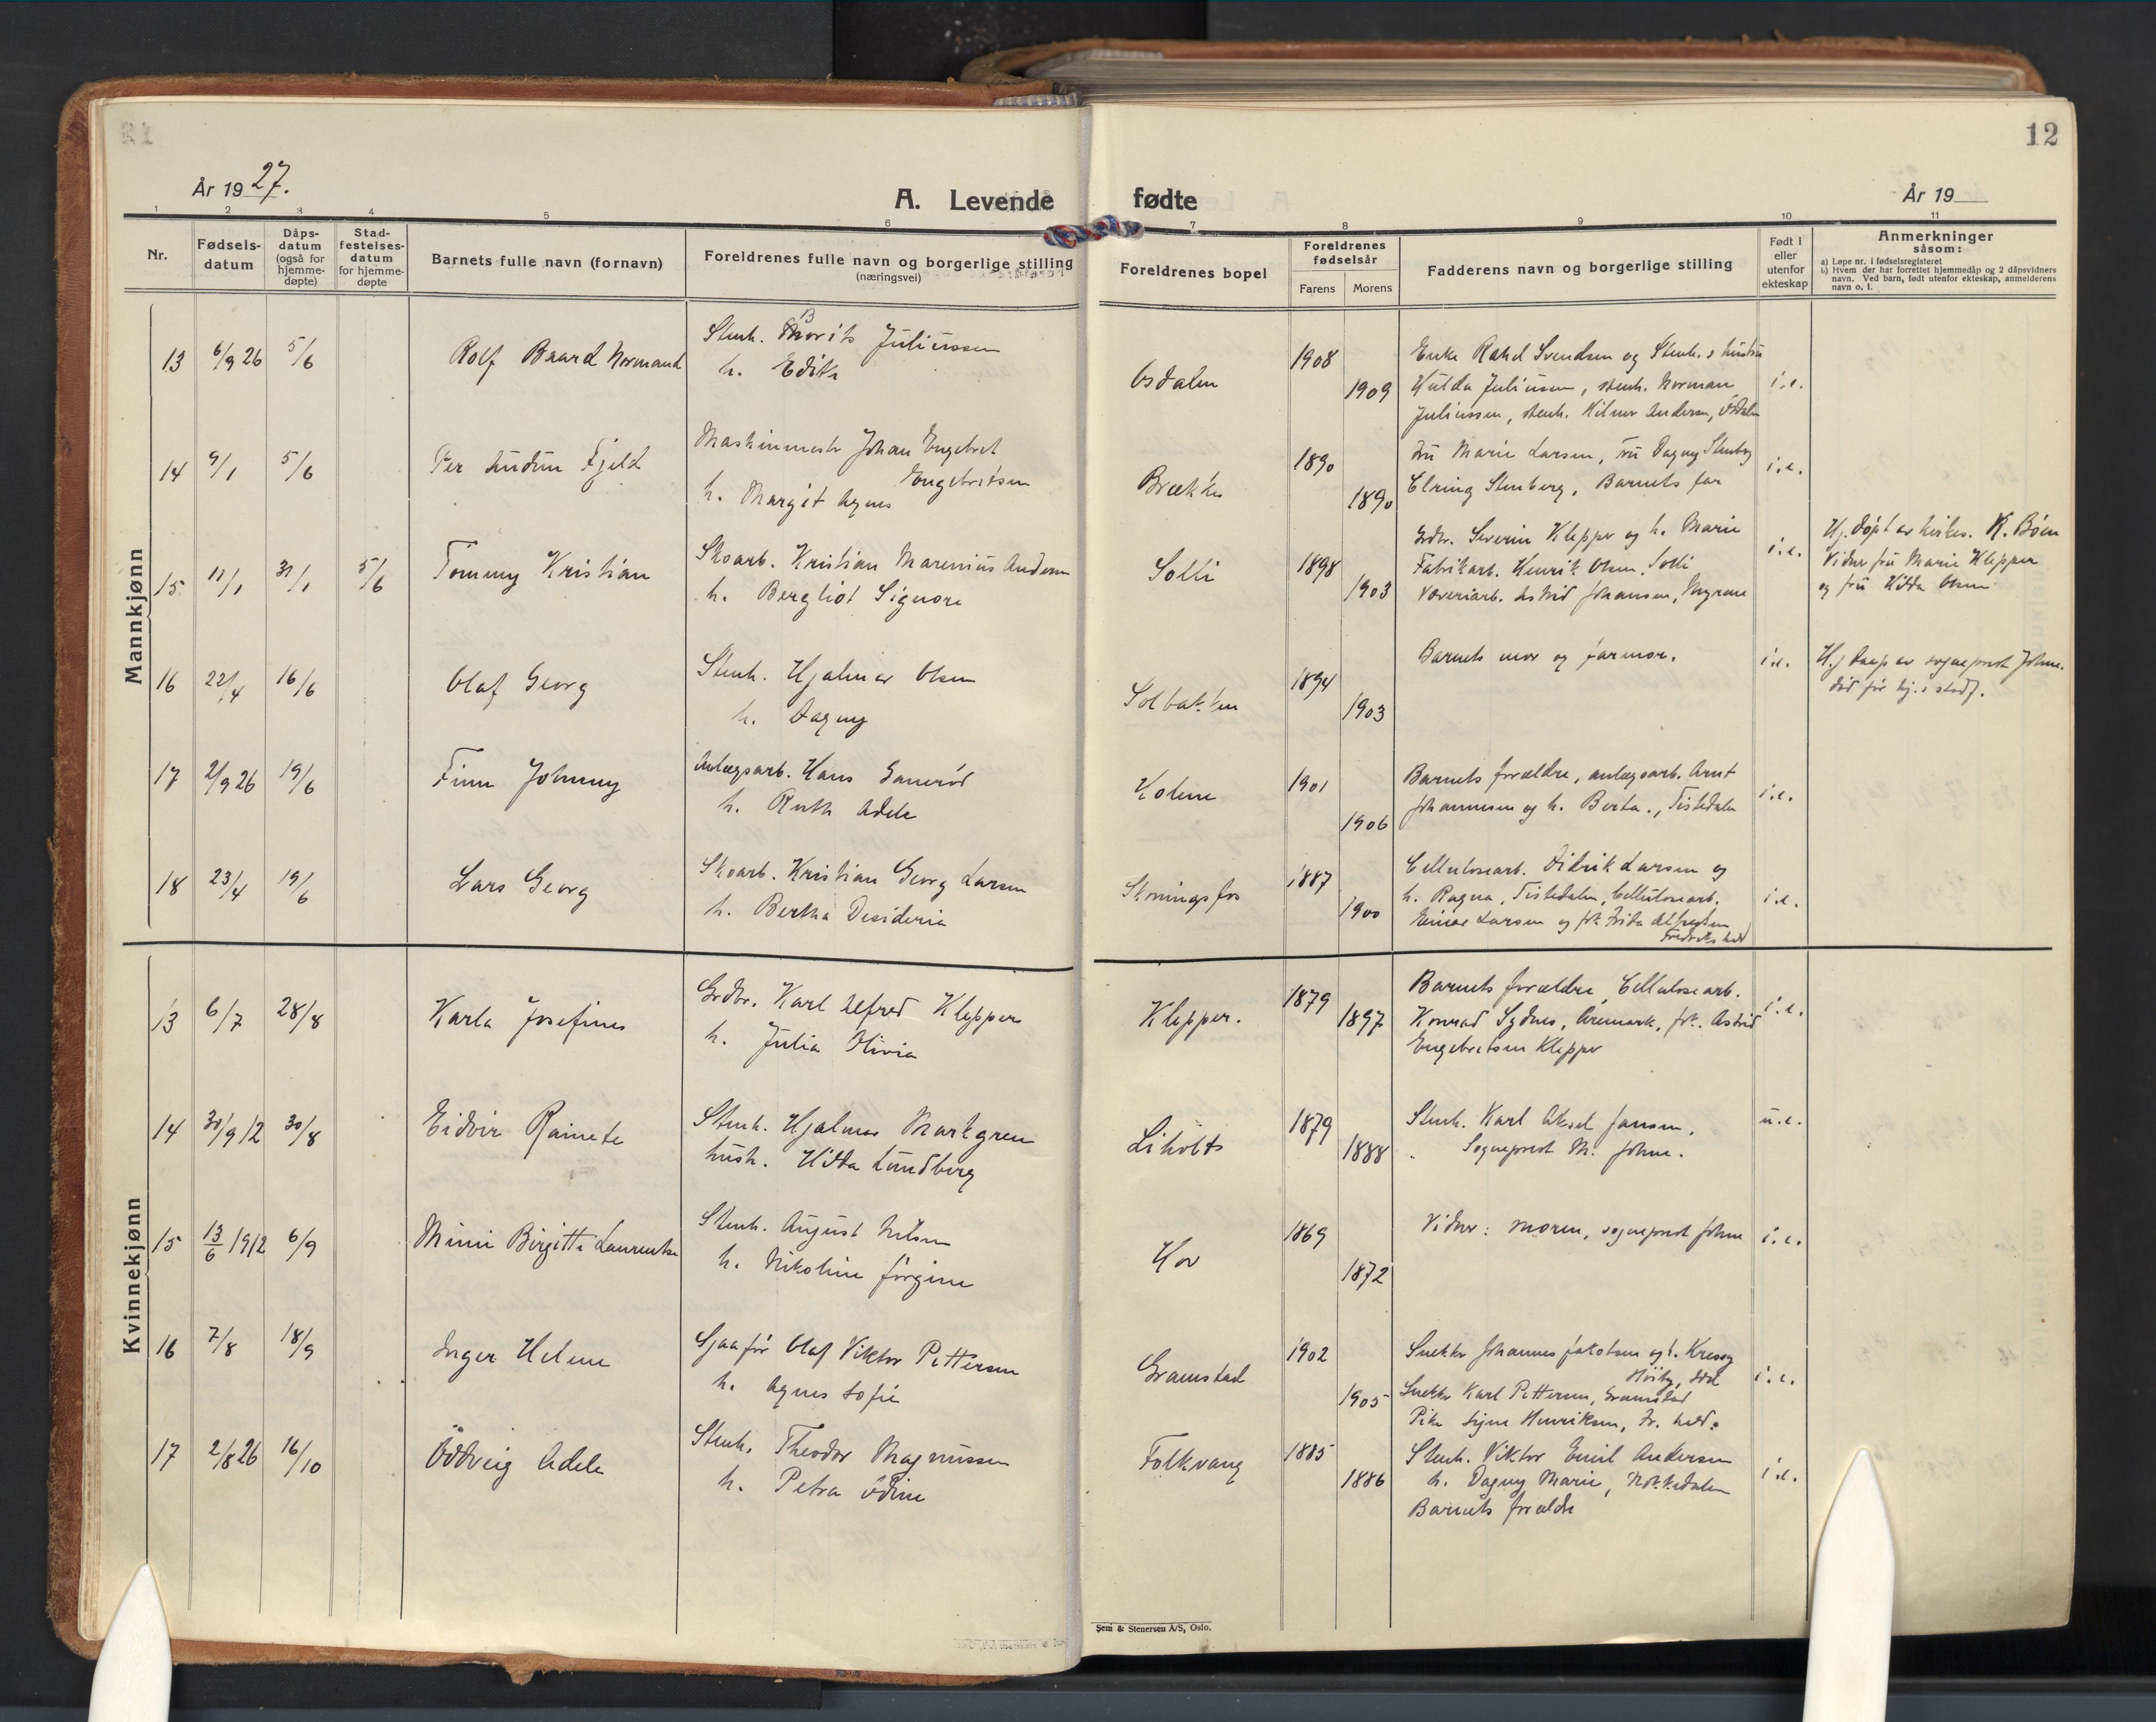 12
År 1927.
A. Levende fødte
År 19
1 2 3 4 5 6 7 8 9 10 11
Nr.
Fødsels-
datum
Dåps-
datum
(også for
hjemme-
døpte)
Stad-
festelses-
datum
for hjemme-
døpte
Barnets fulle navn (fornavn)
Foreldrenes fulle navn og borgerlige stilling
(næringsvei)
Foreldrenes bopel
Foreldrenes
fødselsår
Farens
Morens
Fadderens navn og borgerlige stilling
Født i
eller
utenfor
ekteskap
Anmerkninger
såsom:
a) Løpe nr. i fødselsregisteret
b) Hvem der har forrettet hjemmedåp og 2 dåpsvidners
navn. Ved barn, født utenfor ekteskap, anmelderens
navn o. l.
Mannkjønn
13 6/9 26 5/6 Rolf Baard Normand
Stenh. Morits Juliussen
B
h. Edith
Osdalen
1908
1909
Enke Rakel Svendsen og Stenh.s hustru
Hulda Juliussen, stenh. Norman
Juliussen, stenh. Hilmer Andersen, Osdalen
i.e.
14 9/1 5/6 Per Audun Fjeld
Maskinmestr Johan Engebret
Engebretsen
h. Margit Agnes
Brække
1890
1890
Fru Marie Larsen, Fru Dagny Stenberg
Elring Stenberg, Barnets far
i.e.
15 11/1 31/1 5/6 Tommy Kristian
Skoarb. Kristian Marenius Andersen
h. Bergliot Signora
Solli
1898
1903
Grdbr. Severin Klepper og h. Marie
Fabrikarb. Henrik Olsen, Solli
Væveriarb. Astrid Johansen, Myrene
i.e.
Hj. døpt av kirkes. K. Böen
Vidner fru Marie Klepper
og fru Hilda Olsen
16 22/4 16/6 Olaf Georg
Stenh. Hjalmar Olsen
h. Dagny
Solbakken
1894
1903
Barnets mor og farmor.
i.e.
Hj. daap av sogneprest Johne.
död för hj.s stadf.
17 2/9 26 19/6 Finn Johnny
Anlægsarb. Hans Gauseröd
h. Ruth Adele
Holene
1901
1906
Barnets forældre, anlægsarb. Arnt
Johannesen og h. Berta., Tistedalen
i.e.
18 23/4 19/6 Lars Georg
Skoarb. Kristian Georg Larsen
h. Bertha Desideria
Skoningsfos
1887
1900
Cellulosearb. Didrik Larsen og
h. Ragna, Tistedalen, Cellulosearb.
Einar Larsen og frk. Frida Alfredsen
Fredrikshald
i.e.
Kvinnekjønn
13 6/7 28/8 Karla Josefine
Grdbr. Karl Alfred Klepper
h. Julia Olivia
Klepper.
1879
1897
Barnets forældre, Cellulosearb.
Konrad Sydnes, Aremark, frk. Astrid
Engebretsen Klepper
i.e.
14 30/9 12 30/8 Eidvir Rainete
Stenh. Hjalmar Markgren
hush. Hilda Lundberg
Liholt
1879
1888
Stenh. Karl Aksel Jansen.
Sogneprest M. Johne.
u.e.
15 13/6 1912 6/9 Mimi Birgitte Laurentse
Stenh. August Nilsen
h. Nikoline Jörgine
Hov
1869
1872
Vidner: moren, sogneprest Johne
i.e.
16 7/8 18/9 Inger Helene
Sjaaför Olaf Viktor Pettersen
h. Agnes Sofie
Gramstad
1902
1905
Snekker Johannes Jakobsen og h.
Höiby, Idd
Snekker Karl Pettersen, Gramstad
Pike Signe Henriksen, Fr. hald.
i.e.
17 2/8 26 16/10 Oddveig Adele
Stenh. Theodor Magnussen
h. Petra Odine
Folkvang
1885
1886
Stenh. Viktor Emil Andersen
h. Dagny Marie,
Barnets forældre
i.e.
Sem & Stenersen A/S, Oslo.